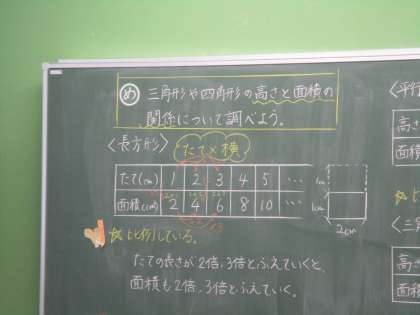 め 三角形や四角形の高さと面積の
関係について調べよう。
〈長方形〉 たて×横
たて(cm) 1 2 3 4 5 …
面積(cm²) 2 4 6 8 10 …
1cm
1cm
2cm
☆比例している。
たての長さが2倍、3倍とふえていくと、
面積も2倍、3倍とふえていく。
〈平行
高さ
面積
〈三
高さ
面積